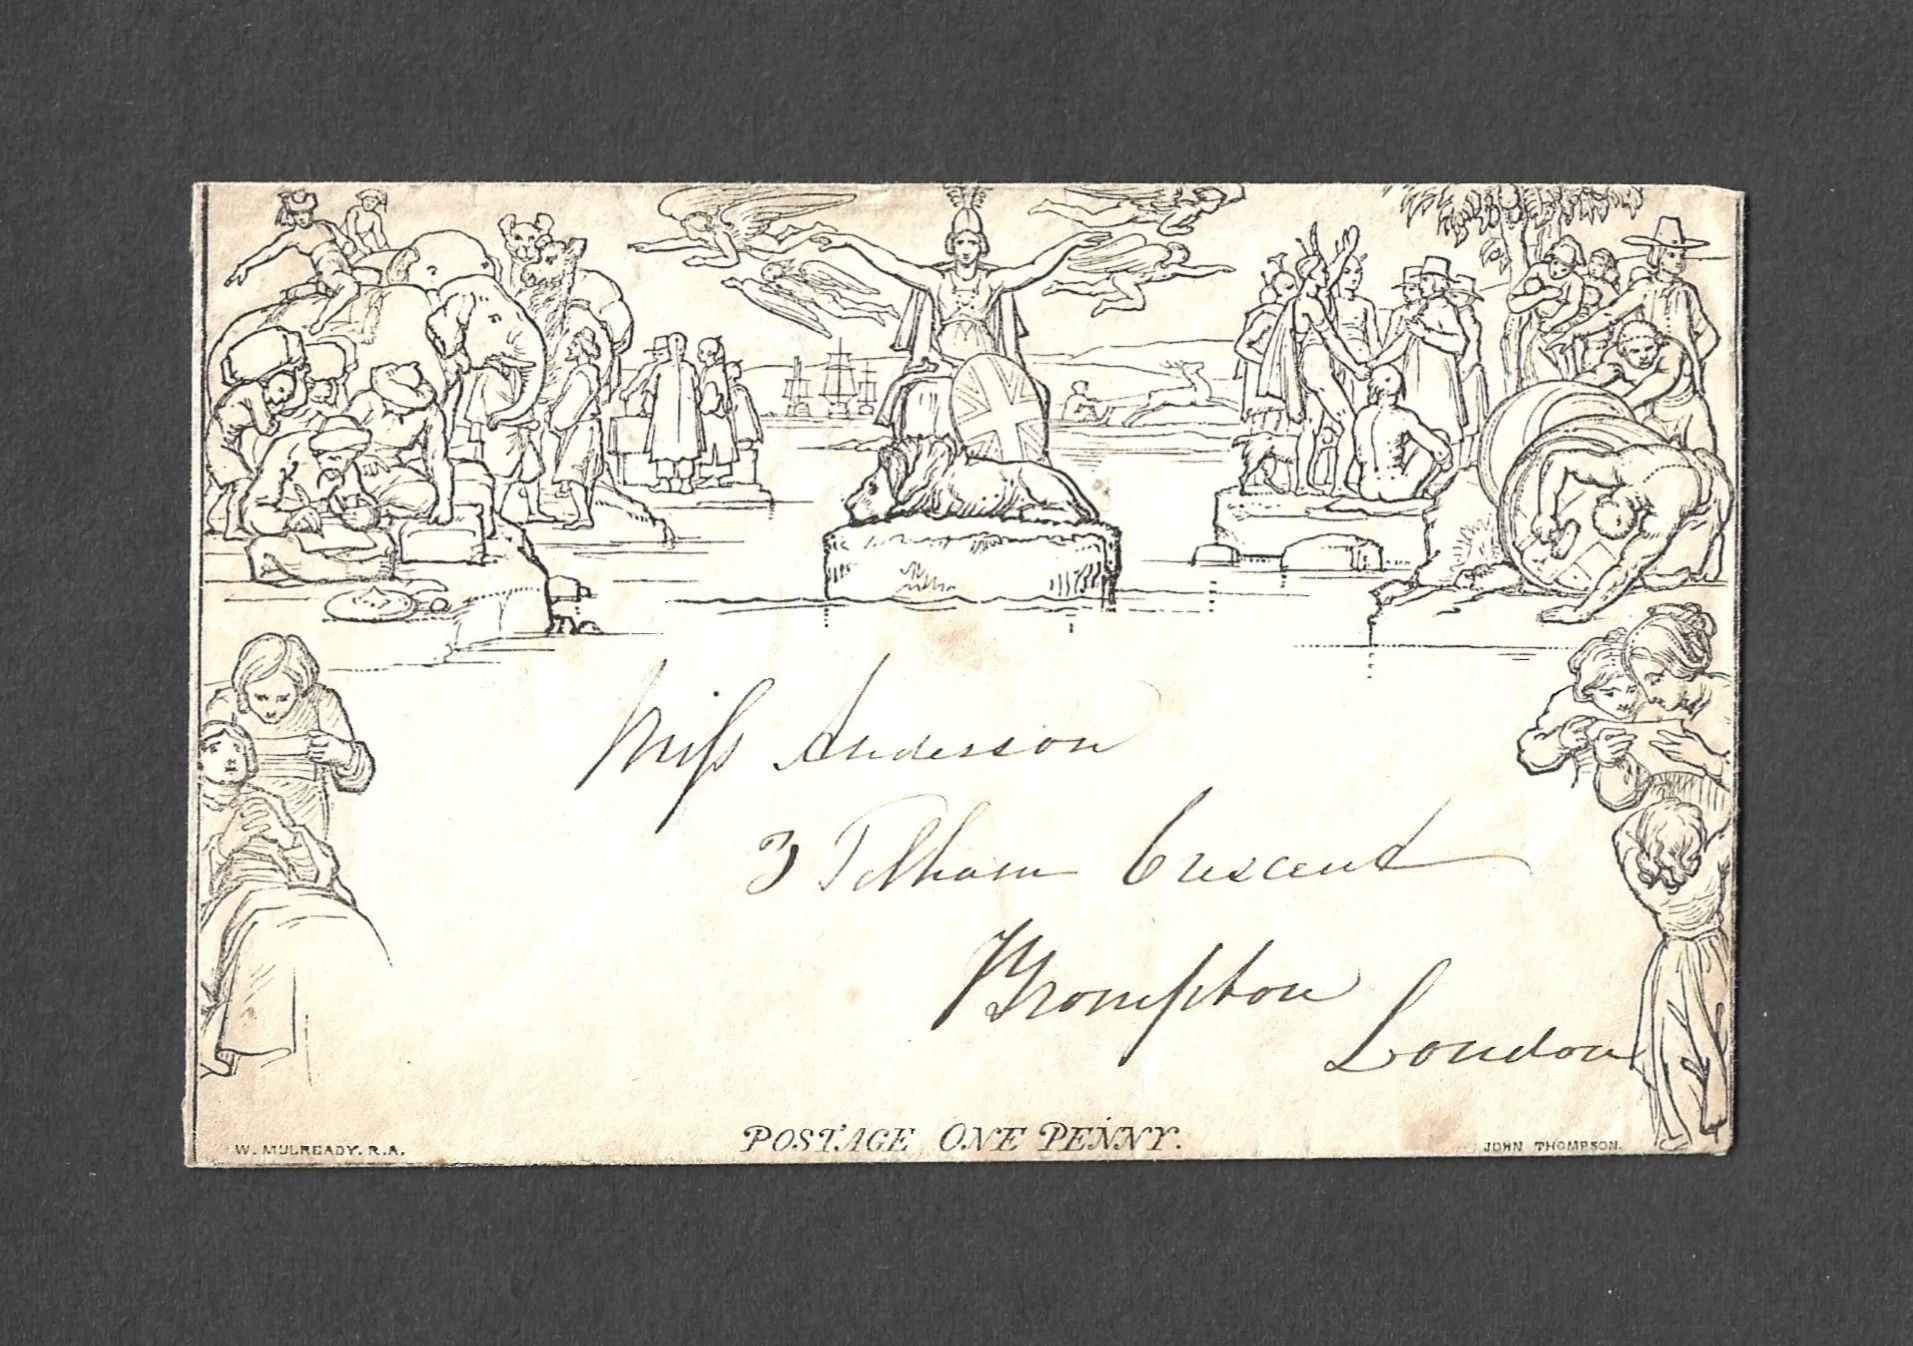 Miss Anderson
3 Pelham Crescent
Brompton
London
POSTAGE ONE PENNY.
W. MULREADY. R.A.
JOHN THOMPSON.